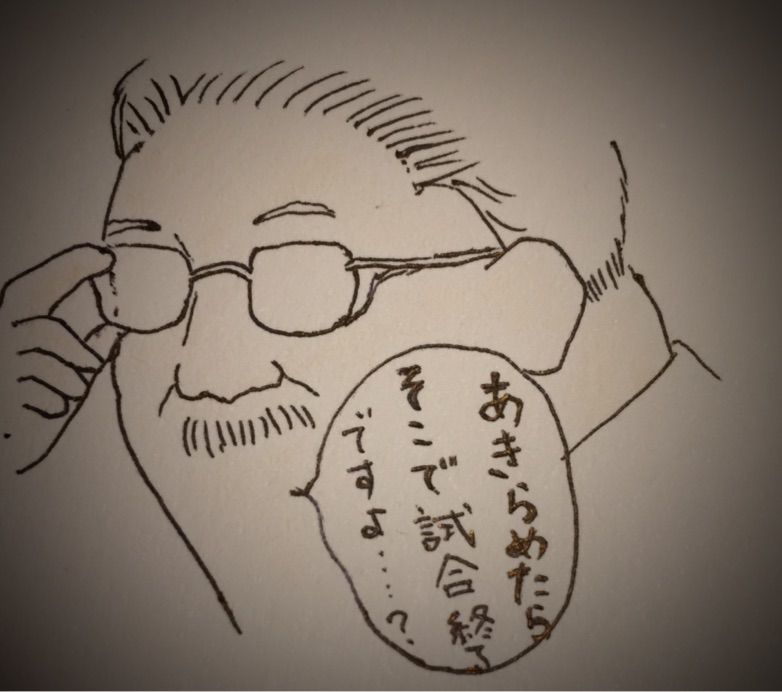 あきらめたら
そこで試合終了
ですよ……?